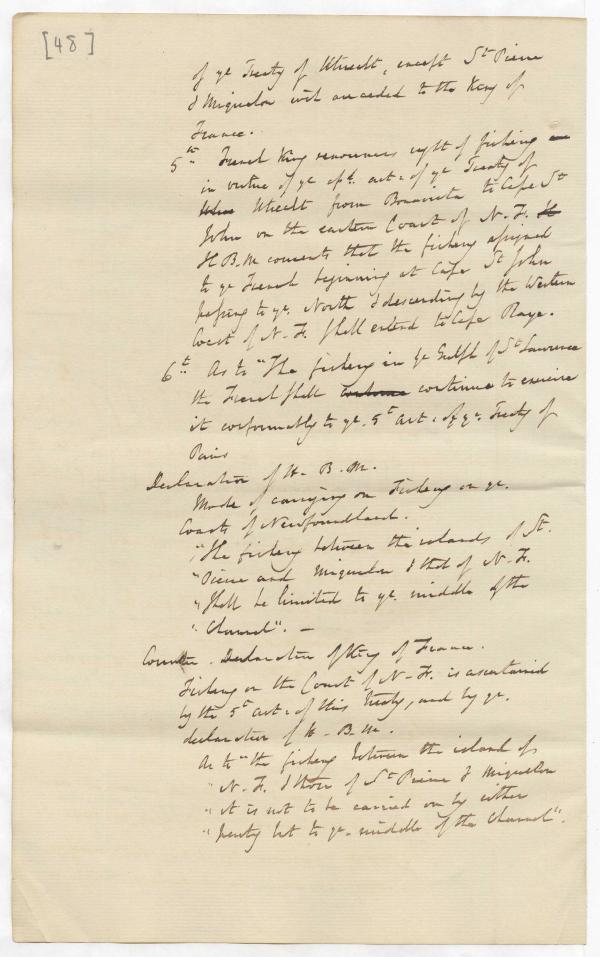 [48]
of ye Treaty of Utrecht, except St Pierre
& Miquelon wch are ceded to the King of
France.
5th French King renounces right of fishing
in virtue of ye afd. art: of ye Treaty of
Utrecht from Bonavista to Cape St
John on the eastern Coast of N. F.
H B. M consents that the fishery assigned
to ye French beginning at Cape St John
passing to ye. North & descending by the Western
Coast of N. F. shall extend to Cape Raye.
6th As to "The fishing in ye Gulph of St Lawrence
the French shall continue to exercise
it conformably to ye. 5t art: of ye. Treaty of
Paris
Declaration of H. B. M.
Mode of carrying on Fishing on ye.
Coasts of Newfoundland.
"The fishing between the islands of St.
"Pierre and Miquelon & that of N. F.
"shall be limited to ye. middle of the
"Channel". —
Counter. Declaration of King of France.
Fishing on the Coast of N. F. is ascertained
by the 5t art: of this Treaty, and by ye.
declaration of H. B. M.
As to "the fishing between the island of
"N. F. & those of St Pierre & Miquelon
"it is not to be carried on by either
"party but to ye. middle of the Channel".